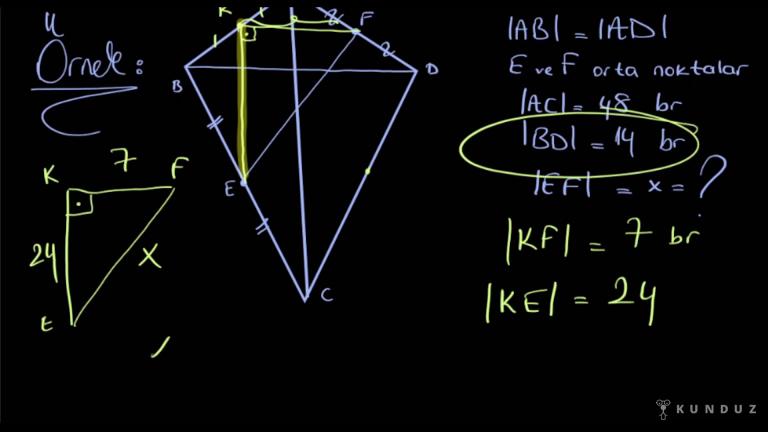 Örnek:
|AB| = |AD|
E ve F orta noktalar
|AC| = 48 br
|BD| = 14 br
|EF| = x = ?
|KF| = 7 br
|KE| = 24
K
1
1
2
F
2
B
D
E
C
7
K
F
24
x
E
KUNDUZ